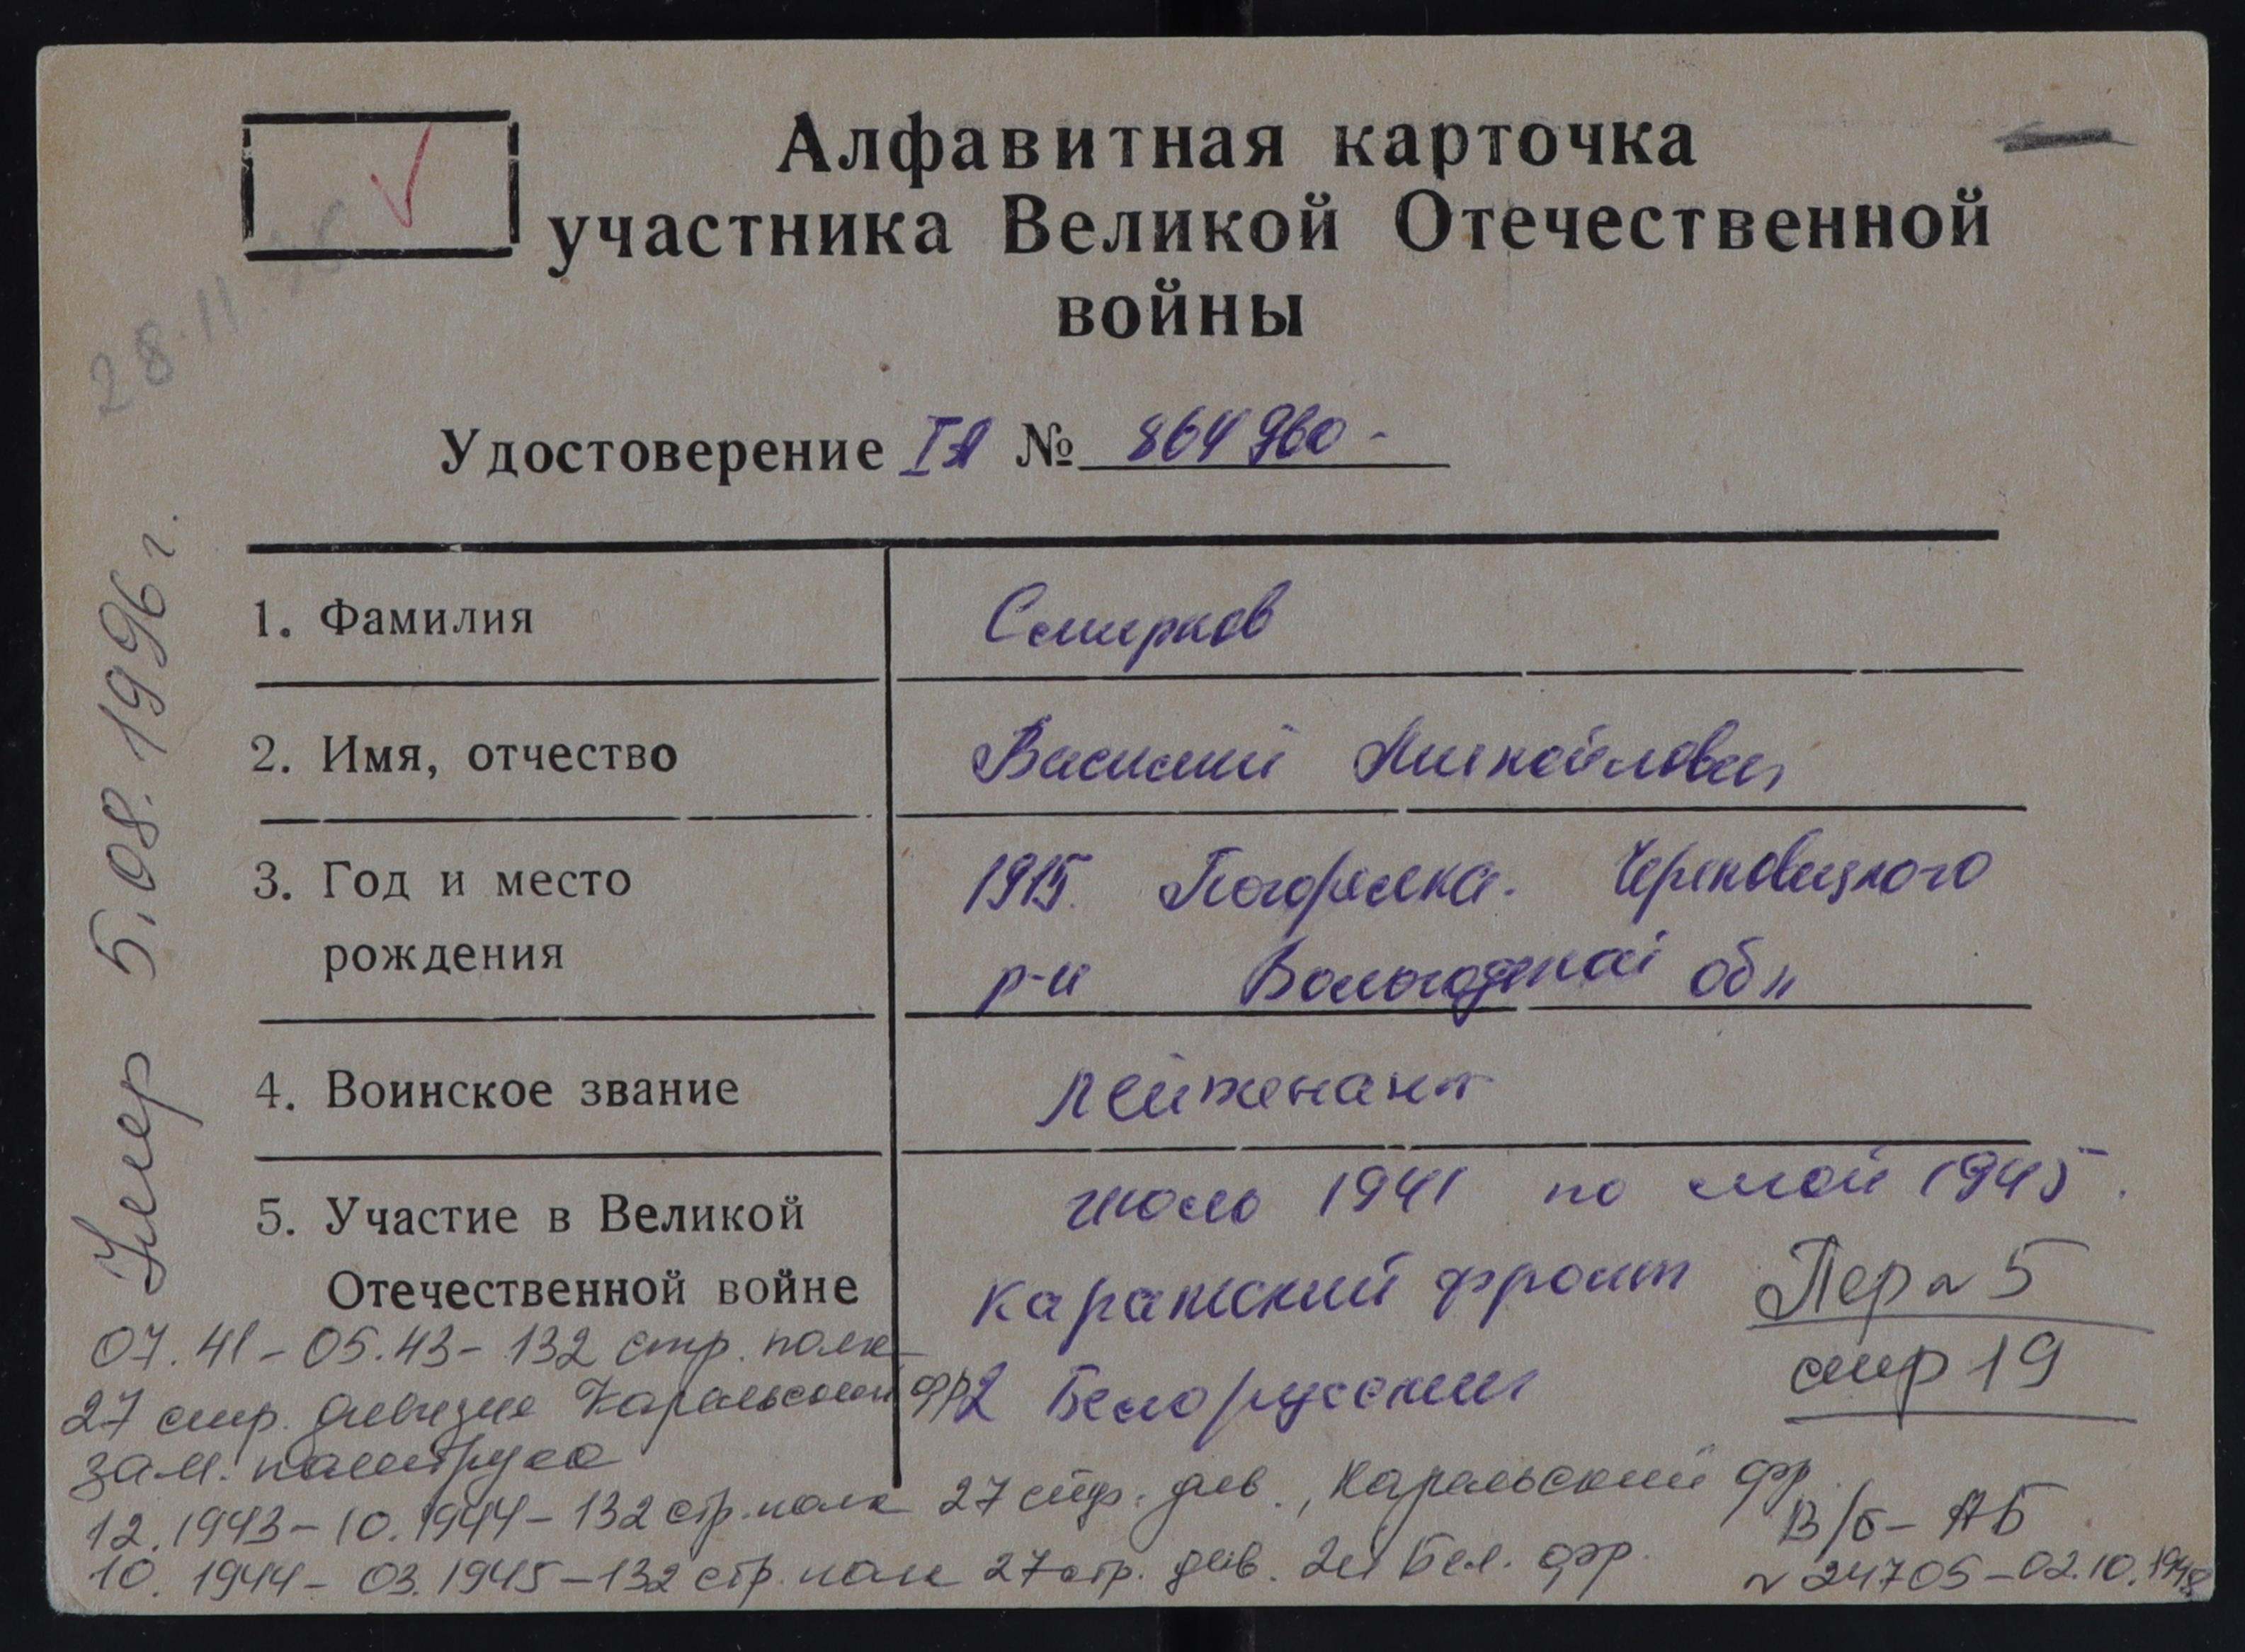 Алфавитная карточка
участника Великой Отечественной
войны
28.11.
Удостоверение IД № 864960-
1. Фамилия Смирнов
2. Имя, отчество Василий Михайлович
3. Год и место 1915. Погорелка. Череповецкого
рождения р-н Вологодской обл
4. Воинское звание лейтенант
5. Участие в Великой июль 1941 по май 1945.
Отечественной войне карельский фронт
2 Белорусский
Пер ~ 5
стр 19
07.41-05.43-132 стр. полк
27 стр. дивизия Карельский фр
зам. политрука
12.1943-10.1944-132 стр. полк 27 стр. див., Карельский фр.
10.1944-03.1945-132 стр. полк 27 стр. див. 2й Бел. фр.
В/б-АБ
~ 24705-02.10.1948
Умер 5.08.1996 г.